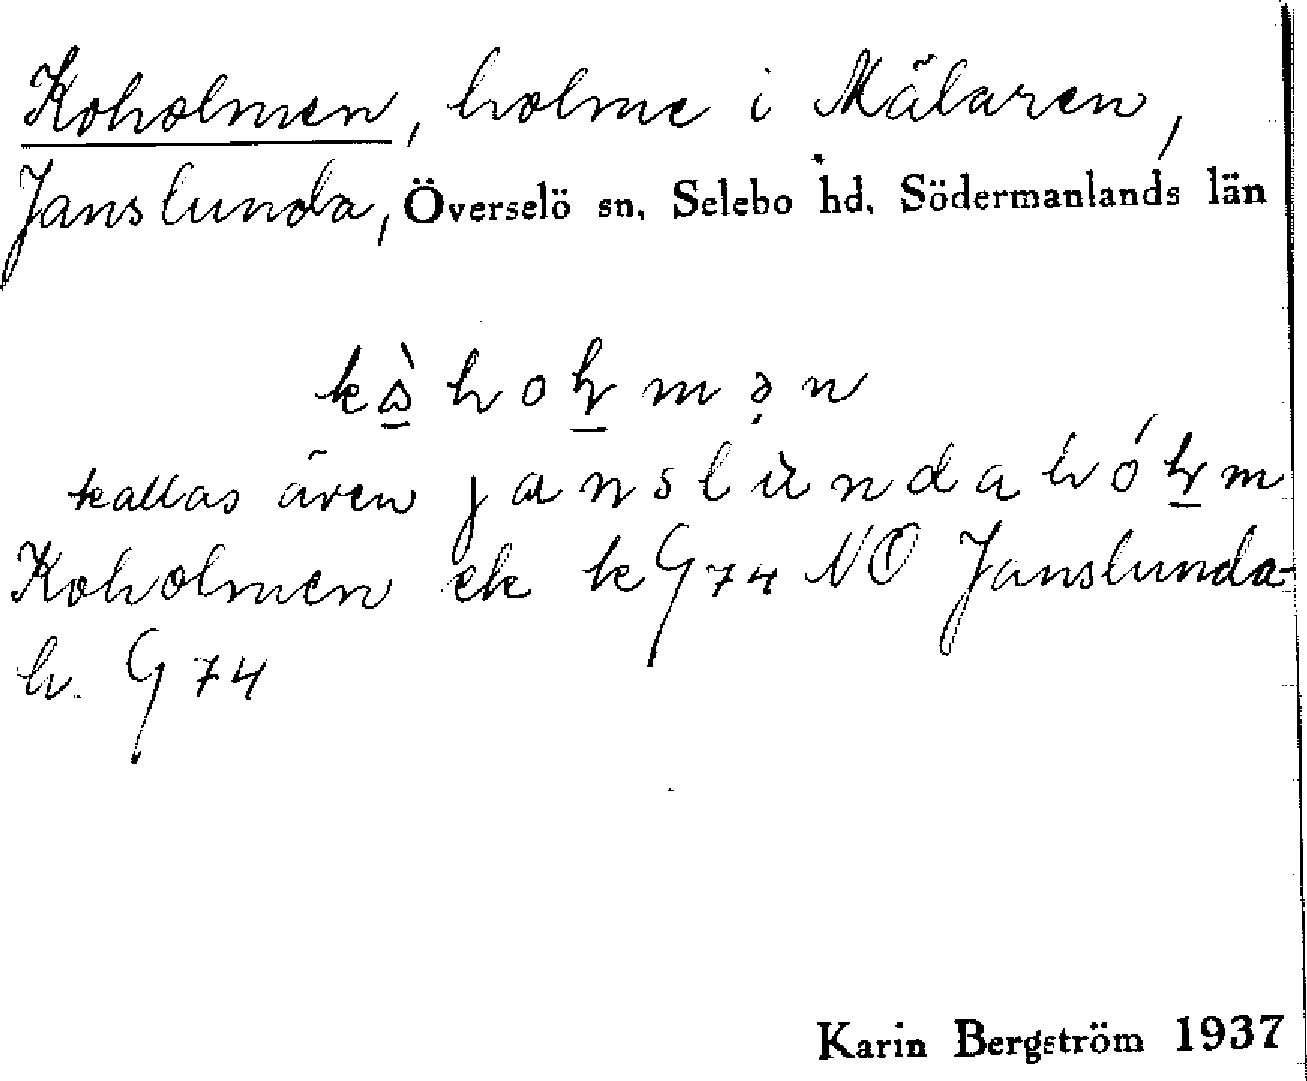 Koholmen, holme i Mälaren,
Janslunda, Överselö sn. Selebo hd. Södermanlands län
kallas även janslùndahóɫm
Koholmen ek kG74 NO Janslunda-
h. G74
Karin Bergström 1937